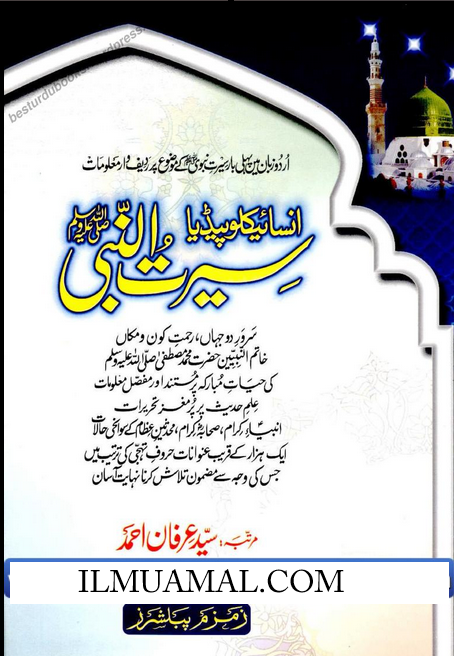 besturdubooks.wordpress
اُردو زبان میں پہلی بار سیرتِ نبوی ﷺ کے موضوع پر ردیف وار معلومات
انسائیکلوپیڈیا
سیرتُ النّبی ﷺ
سرورِ دو جہاں، رحمتِ کون و مکاں
خاتم النبیین حضرت محمد مصطفیٰ صلی اللہ علیہ وسلم
کی حیاتِ مبارکہ پر مستند اور مفصل معلومات
علمِ حدیث پر پُرمغز تحریرات
انبیاء کرام، صحابۂ کرام، محدثین عظام کے سوانحی حالات
ایک ہزار کے قریب عنوانات حروفِ تہجی کی ترتیب میں
جس کی وجہ سے مضمون تلاش کرنا نہایت آسان
مرتبہ: سیّد عرفان احمد
ILMUAMAL.COM
زمزم پبلشرز